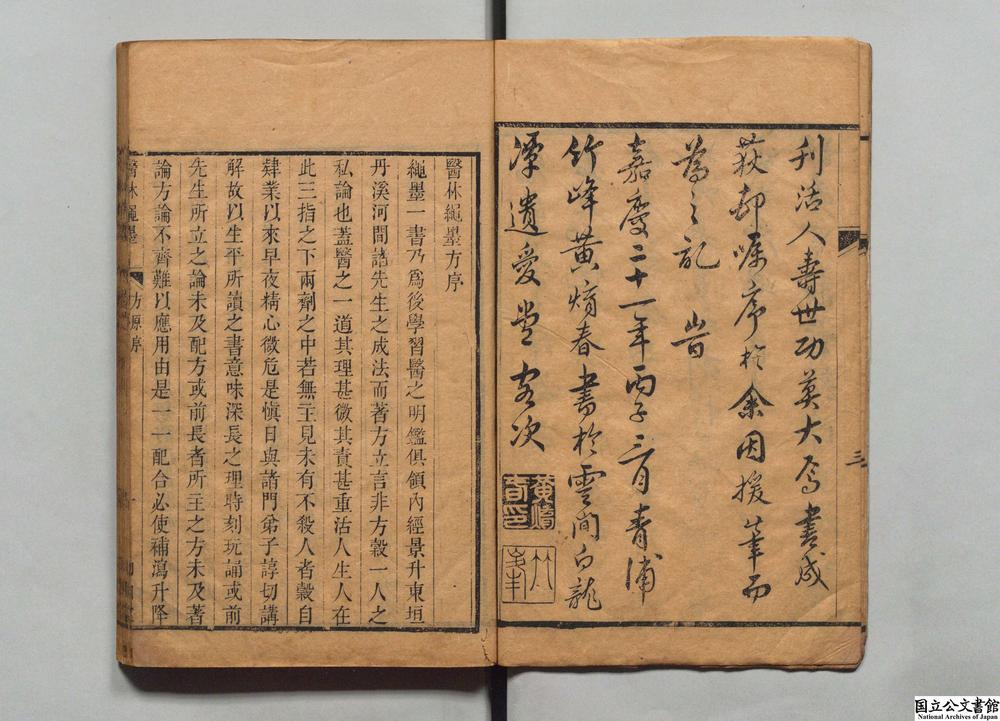 刋活人壽世功莫大焉書成
荻邨囑序於余因援筆而
為之記 旹
嘉慶二十一年丙子三月青浦
竹峰黃熕春書於雲間白龍
潭遺愛堂客次
三
醫林繩墨方序
繩墨一書乃爲後學習醫之明鑑俱領內經景升東垣
丹溪河間諸先生之成法而著方立言非方穀一人之
私論也蓋醫之一道其理甚微其責甚重活人生人在
此三指之下兩劑之中若無主見未有不殺人者穀自
肄業以來早夜精心微危是愼日與諸門弟子諄切講
解故以生平所讀之書意味深長之理時刻玩誦或前
先生所立之論未及配方或前長者所主之方未及著
論方論不齊難以應用由是一一配合必使補瀉升降
醫林繩墨
方原序
国立公文書館
National Archives of Japan